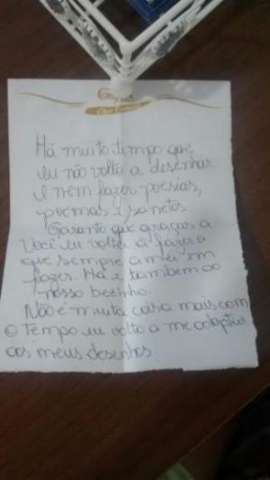 Há muito tempo que
eu não volto a desenhar
e nem fazer poesias,
poemas e sonetos.
Garanto que graças a
Você eu voltei a fazer o
que sempre amei em
fazer. Há e também ao
nosso
Não é muita coisa mais com
o Tempo eu volto a me adaptar
aos meus desenhos